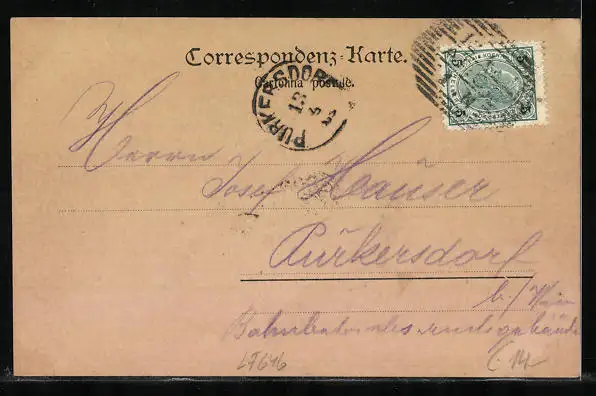 Correspondenz-Karte.
Cartolina postale.
PURKERSDORF
5
5
5
Herrn
Josef Hauser
Purkersdorf
b/ Wien
47616